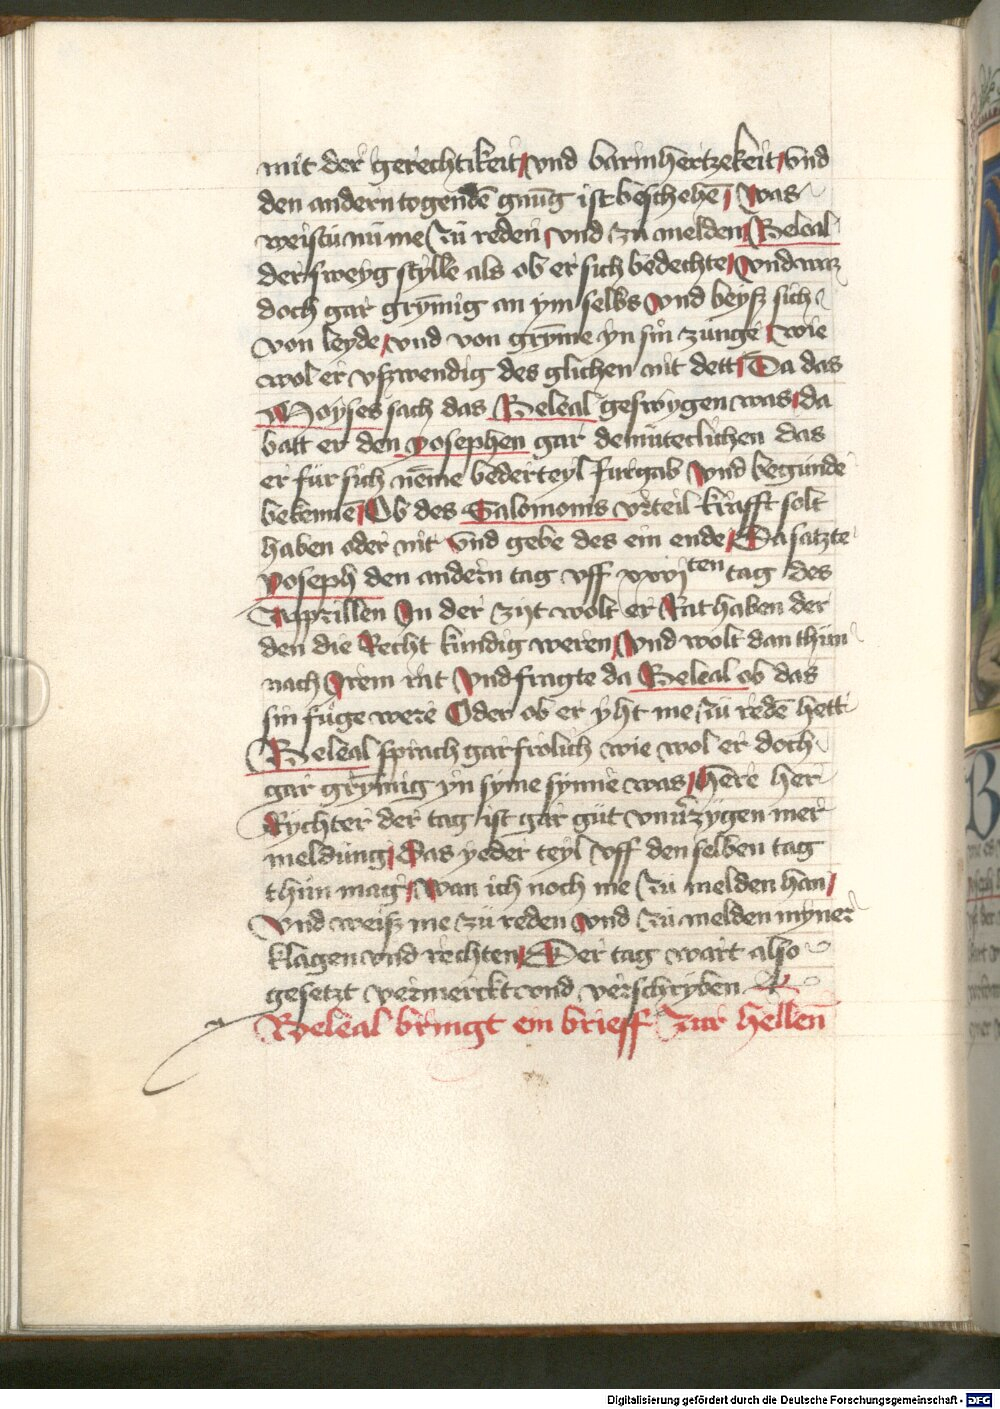 mit der gerechtikeit vnd barmhertzekeit vnd
den andern togendē gnūg ist beschehē was
weistu nū me zů reden vnd zu melden Beleal
der sweyg stylle als ob er sich bedechte vnd waz
doch gar grȳmig an ym selbs vnd beyß sich
von leyde vnd von grȳme yn sin zunge wie
wol er vßwendig des glichen nit dett Da das
Moyses sach das Beleal geswygen was da
batt er den yosephen gar demüteclichen das
er für sich nēme beder teyl furgab vnd begunde
bekennē Ob des Salomonis vrteil krafft solt
haben oder nit vnd gebe des ein ende Da satzte
yoseph den andern tag vff xxvj ten tag des
Apprillen In der zyt wolt er Rat haben der
den die Recht kundig weren vnd wolt dan thun
nach Irem rat vnd fragte da Beleal ob das
sin füge were Oder ob er yht me zů redē hett
Beleal sprach gar frolich wie wol er doch
gar grȳmig yn syme synne was here her
Rychter der tag ist gar güt vnuerzygen mer
meldung Das yeder teyl vff den selben tag
thün mag Wan ich noch me zü melden han
vnd weiß me zü reden vnd zü melden myner
klagen vnd rechten Der tag wart also
gesetzt vermerckt vnd verschryben
Beleal bringt ein brieff zur hellen